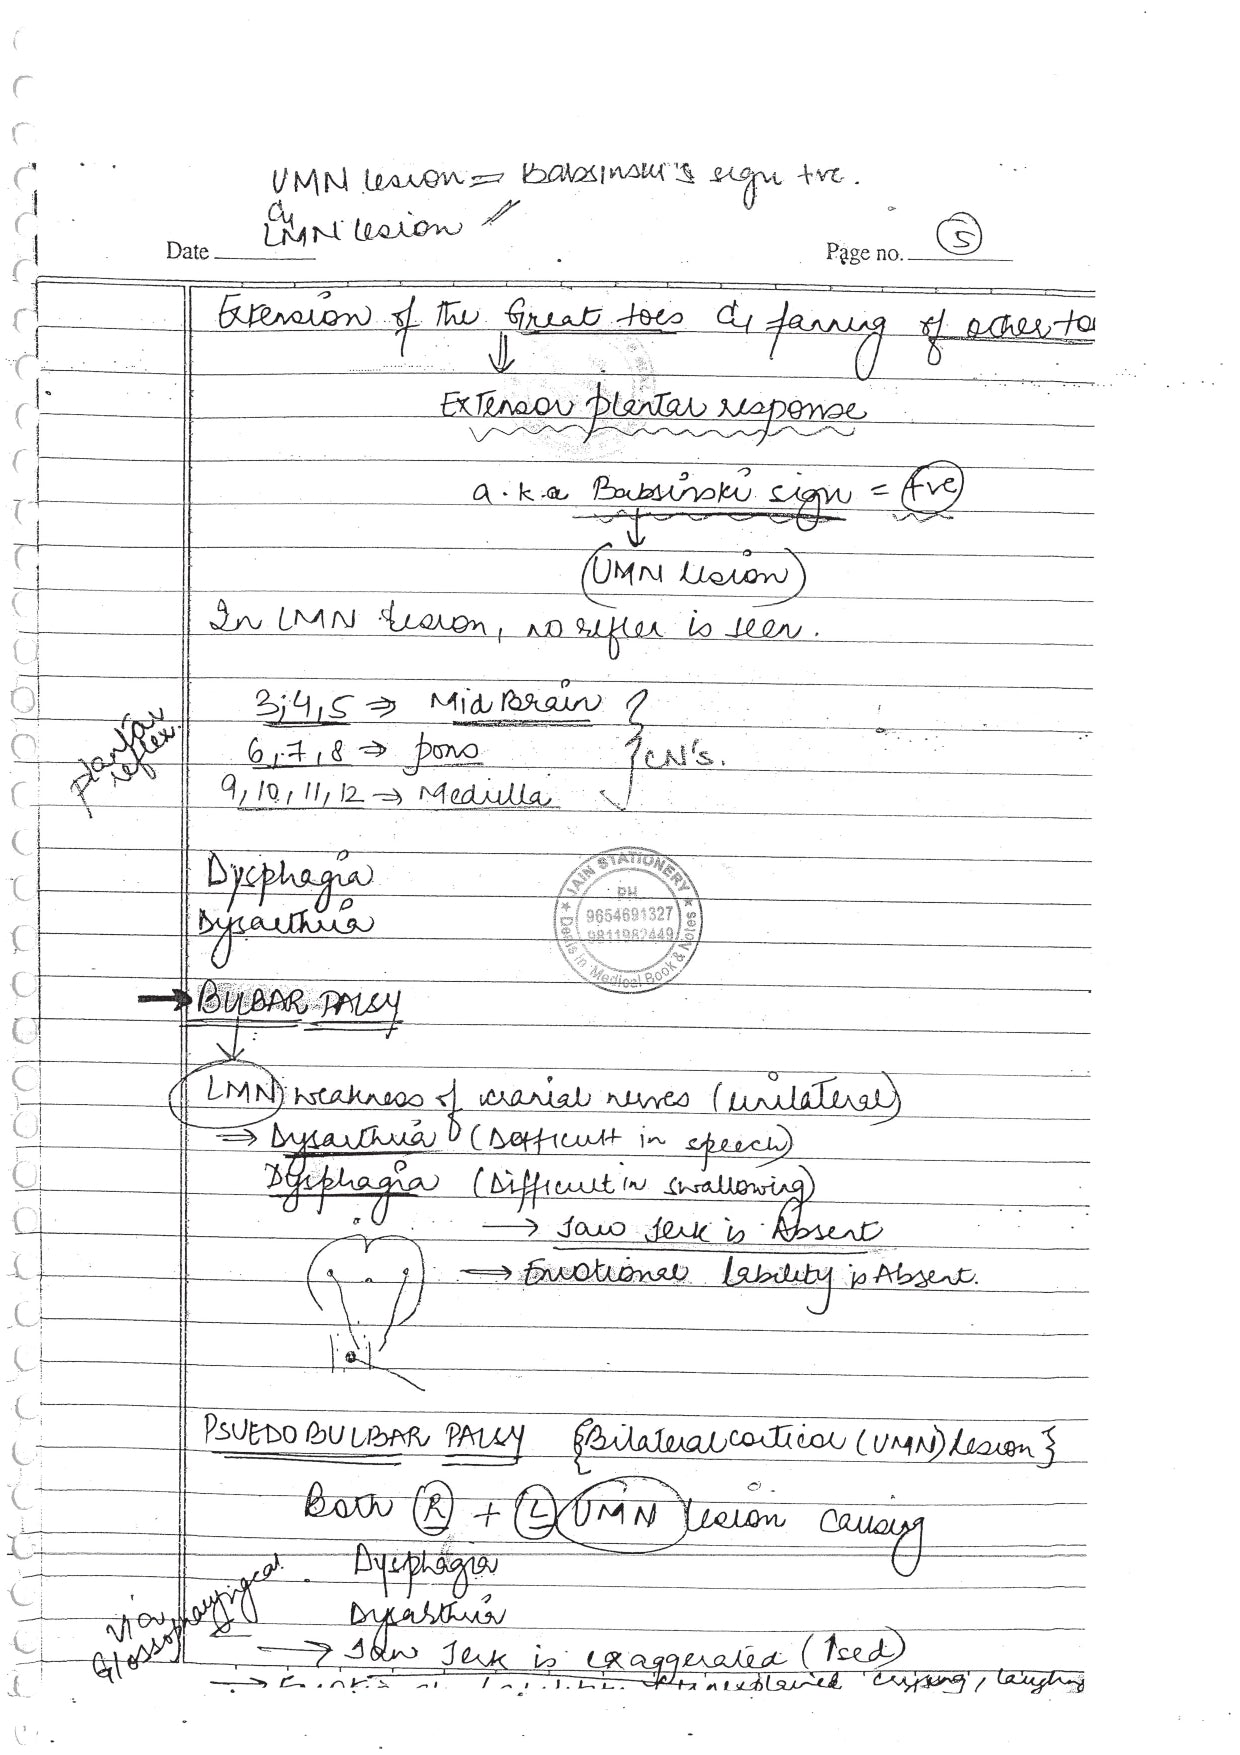 UMN lesion = Babsinski's sign +ve.
LMN lesion
Date
Page no. 5
Extension of the Great toes C̅ fanning of other to
Extensor plantar response
a.k.a Babsinski sign = +ve
UMN lesion
In LMN lesion, no reflex is seen.
3,4,5 ⇒ Mid Brain
6,7,8 ⇒ pons
CN's.
9,10,11,12 → Medulla
plantar reflex.
Dysphagia
Dysarthria
JAIN STATIONERY
PH
9654691327
9811982449
Deals in Medical Book & Notes
→ BULBAR PALSY
LMN weakness of cranial nerves (unilateral)
⇒ Dysarthria (Difficult in speech)
Dysphagia (Difficult in swallowing)
→ Jaw Jerk is Absent
→ Emotional lability is Absent.
PSUEDOBULBAR PALSY {Bilateral cortical (UMN) lesion}
Both R + L UMN lesion causing
Dysphagia
Dysarthria
via Glossopharyngeal
→ Jaw Jerk is exaggerated (↑sed)
unexplained crying, laughing